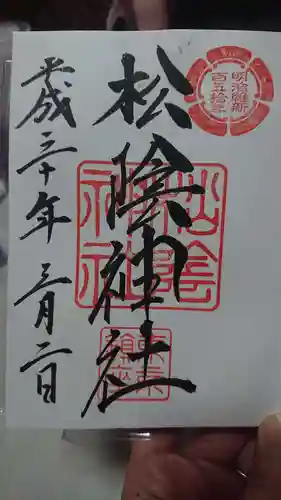 明治維新
百五十年
松陰神社
平成三十年三月二日
松陰
神社
東京
鎮座